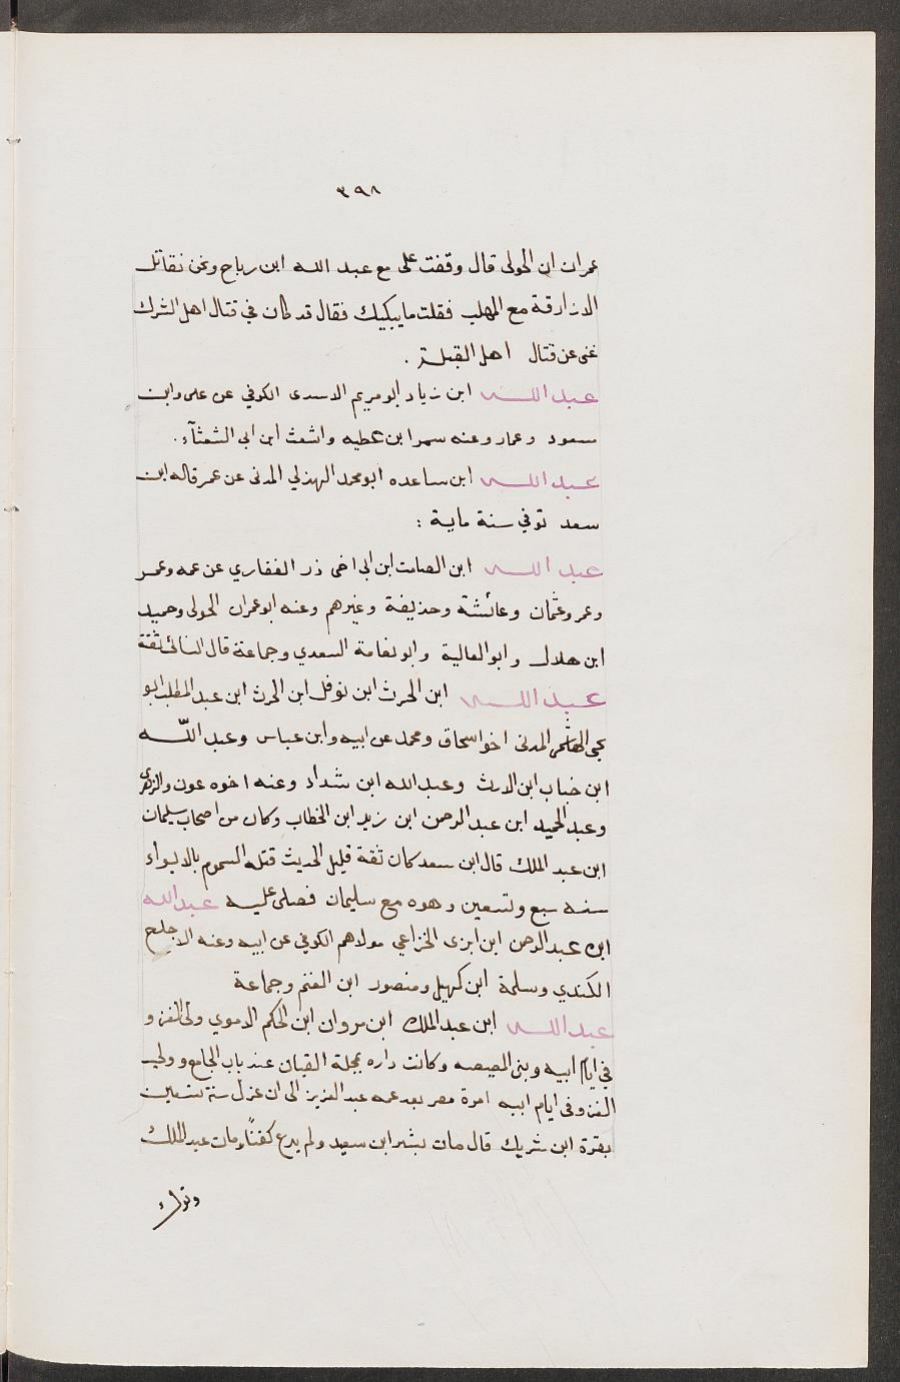 ٣٩٨
عمران ابن الجولى قال وقفت على مع عبد الله ابن رباح ونحن نقاتل
الازارقة مع المهلب فقلت ما يبكيك فقال قد كان في قتال اهل الشرك
غنى عن قتال اهل القبلة .
عبد الله ابن زياد ابو مريم الاسدى الكوفي عن على وابن
سعود وعمار وعنه سمرا ابن عطيه واشعث ابن ابى الشعثآء .
عبد الله ابن ساعده ابو محمد الهذلي المدنى عن عمر قاله ابن
سعد توفي سنة ماية :
عبد الله ابن الصامت ابن ابى اخى ذر الغفاري عن عمه وعمر
وعمر وعثمان وعائشة وحذيفة وغيرهم وعنه ابو عمران الجولى وحميد
ابن هلال وابو العالية وابو نعامة السعدي وجماعة قال النسائى ثقة
عبد الله ابن الحرث ابن نوفل ابن الحرث ابن عبد المطلب ابو
يحيى الهاشمى المدنى اخو اسحاق ومحمد عن ابيه وابن عباس وعبد اللّه
ابن خباب ابن الارث وعبد الله ابن شداد وعنه اخوه عون والزهرى
وعبد الحميد ابن عبد الرحمن ابن زيد ابن الخطاب وكان من اصحاب سليمان
ابن عبد الملك قال ابن سعد كان ثقة قليل الحديث قتله السموم بالابواء
سنه سبع وتسعين وهوه مع سليمان فصلى عليه عبد الله
ابن عبد الرحمن ابن ابزى الخزاعي مولاهم الكوفي عن ابيه وعنه الاجلح
الكندي وسلمة ابن كهيل ومنصور ابن الغنم وجماعة
عبد الله ابن عبد الملك ابن مروان ابن الحكم الاموي ولى الغزو
في ايام ابيه وبنى المصيصه وكانت داره بمحلة القبان عند باب الجامع وولى
الغزو فى ايام ابيه امرة مصر بعد عمه عبد العزيز الى ان عزل سنة تسعين
بقرة ابن شريك قال مات بشر ابن سعيد ولم يدع كفنًا ومات عبد الملك
وترك